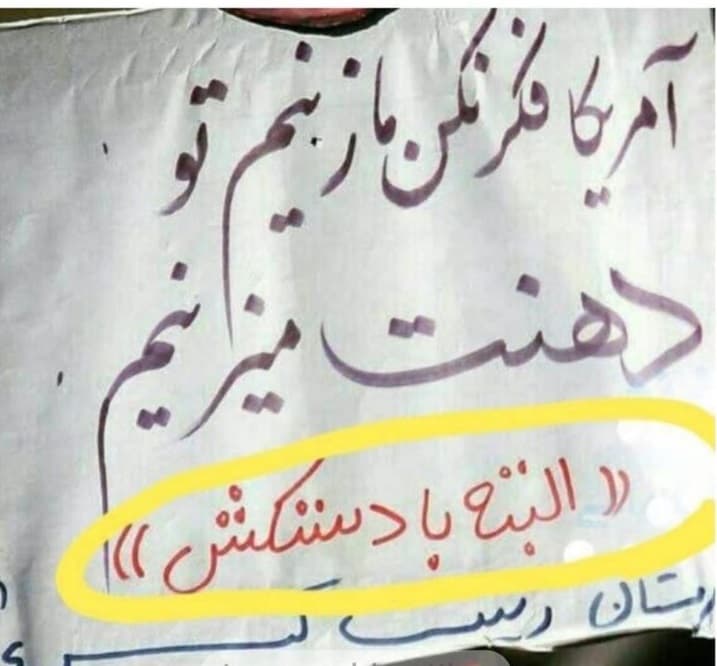 آمریکا فکر نکن ما زنیم تو
دهنت میزنیم
«البته با دستکش»